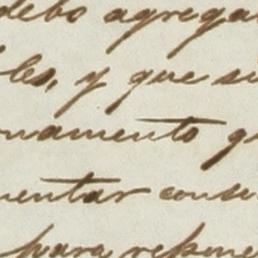 debo agregar
les, y que si
namento g
mentar conse
para repone